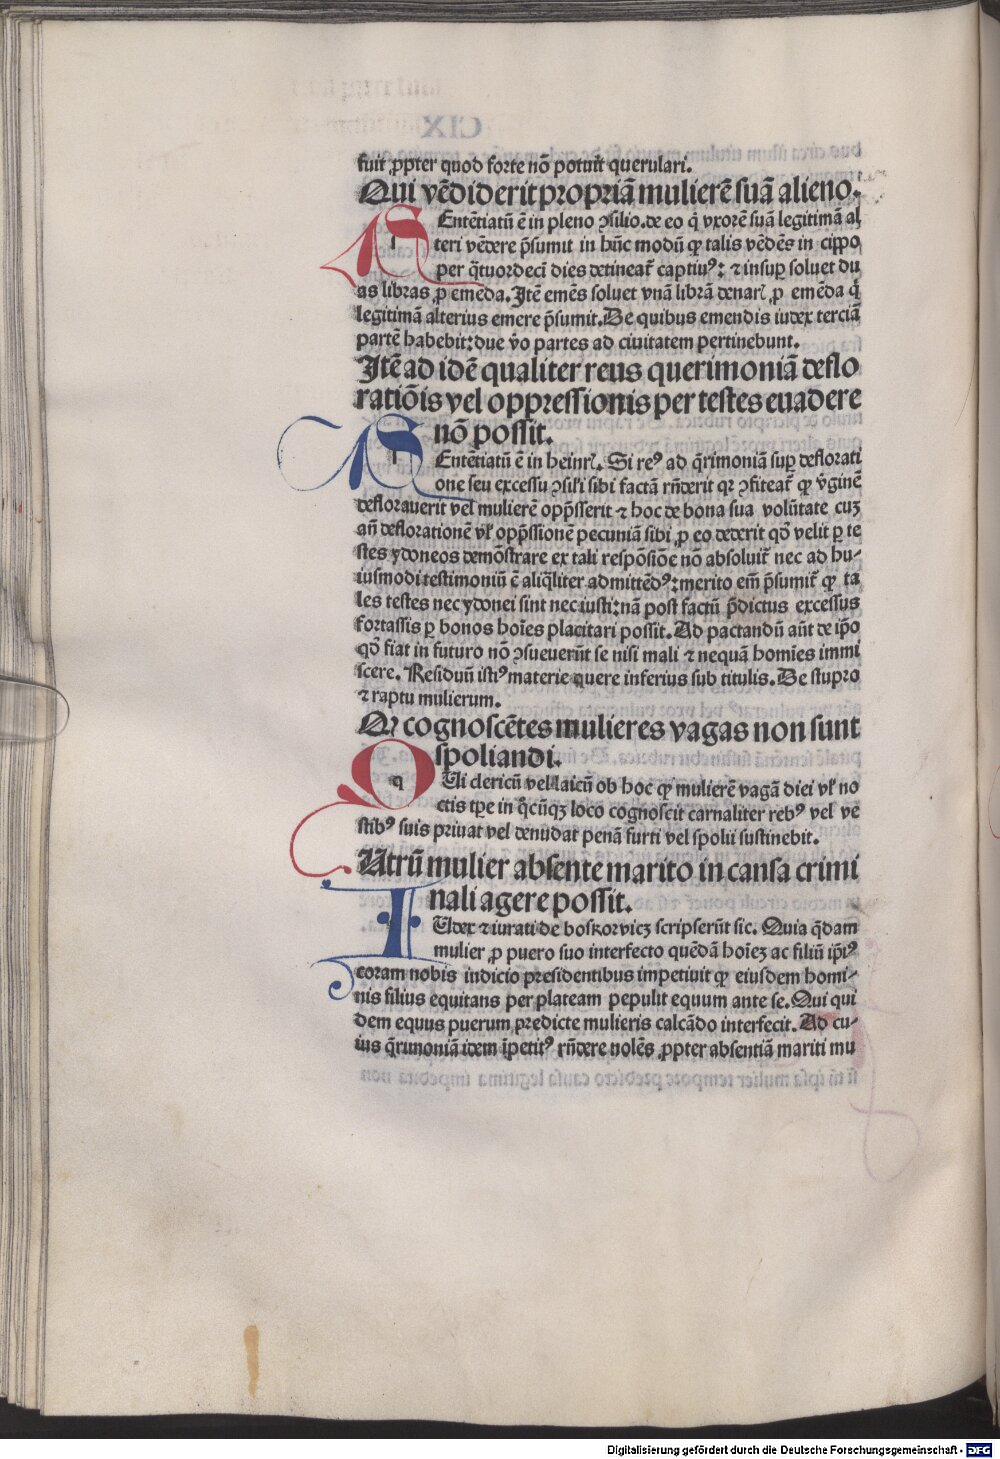 fuit ꝓpter quod forte nō potuit̄ querulari.
Qui vēdiderit propriā mulierē suā alieno.
SEntētiatū ē in pleno ↄsilio. de eo q̄ vxorē suā legitimā al
teri vēdere p̄sumit in hūc modū ꝙ talis vēdēs in cippo
per q̄tuordecī dies detineat̄ captiuꝰ: ⁊ insuꝑ soluet du
as libras ꝓ emēda. Itē emēs soluet vnā librā denarꝭ ꝓ emēda q̄
legitimā alterius emere p̄sumit. De quibus emendis iudex terciā
partē habebit: due v̄o partes ad ciuitatem pertinebunt.
Itē ad idē qualiter reus querimoniā deflo
ratiōis vel oppressionis per testes euadere
nō possit.
SEntētiatū ē in heinrꝭ. Si reꝰ ad q̄rimoniā suꝑ deflorati
one seu excessu ↄsil'i sibi factā rn̄derit qꝛ ↄfiteat̄ ꝙ v̄ginē
deflorauerit vel mulierē opp̄sserit ⁊ hoc de bona sua volūtate cuꝫ
an̄ deflorationē vl' opp̄ssionē pecuniā sibi ꝓ eo dederit qd̄ velit ꝑ te
stes ydoneos demōstrare ex tali respōsiōe nō absoluit̄ nec ad hu-
iusmodi testimoniū ē aliq̄liter admittēdꝰ: merito em̄ p̄sumit̄ ꝙ ta
les testes nec ydonei sint nec iusti: nā post factū p̄dictus excessus
fortassis ꝑ bonos hoīes placitari possit. Ad pactandū aūt de ip̄o
qd̄ fiat in futuro nō ↄsueuerūt se nisi mali ⁊ nequā homīes immi
scere. Residuū istiꝰ materie quere inferius sub titulis. De stupro
⁊ raptu mulierum.
Qꝛ cognoscētes mulieres vagas non sunt
spoliandi.
QUi clericū vel laicū ob hoc ꝙ mulierē vagā diei vl' no
ctis tp̄e in q̄cūqꝫ loco cognoscit carnaliter rebꝰ vel ve
stibꝰ suis priuat vel denudat penā furti vel spolii sustinebit.
Utrū mulier absente marito in causa crimi
nali agere possit.
IUdex ⁊ iurati de boskorvicꝫ scripserūt sic. Quia q̄dam
mulier ꝓ puero suo interfecto quēdā hoīeꝫ ac filiū ip̄iꝰ
coram nobis iudicio presidentibus impetiuit ꝙ eiusdem homi-
nis filius equitans per plateam pepulit equum ante se. Qui qui
dem equus puerum predicte mulieris calcādo interfecit. Ad cu-
ius q̄rimoniā idem īpetitꝰ rn̄dere nolēs ꝓpter absentiā mariti mu
Digitalisierung gefördert durch die Deutsche Forschungsgemeinschaft - DFG